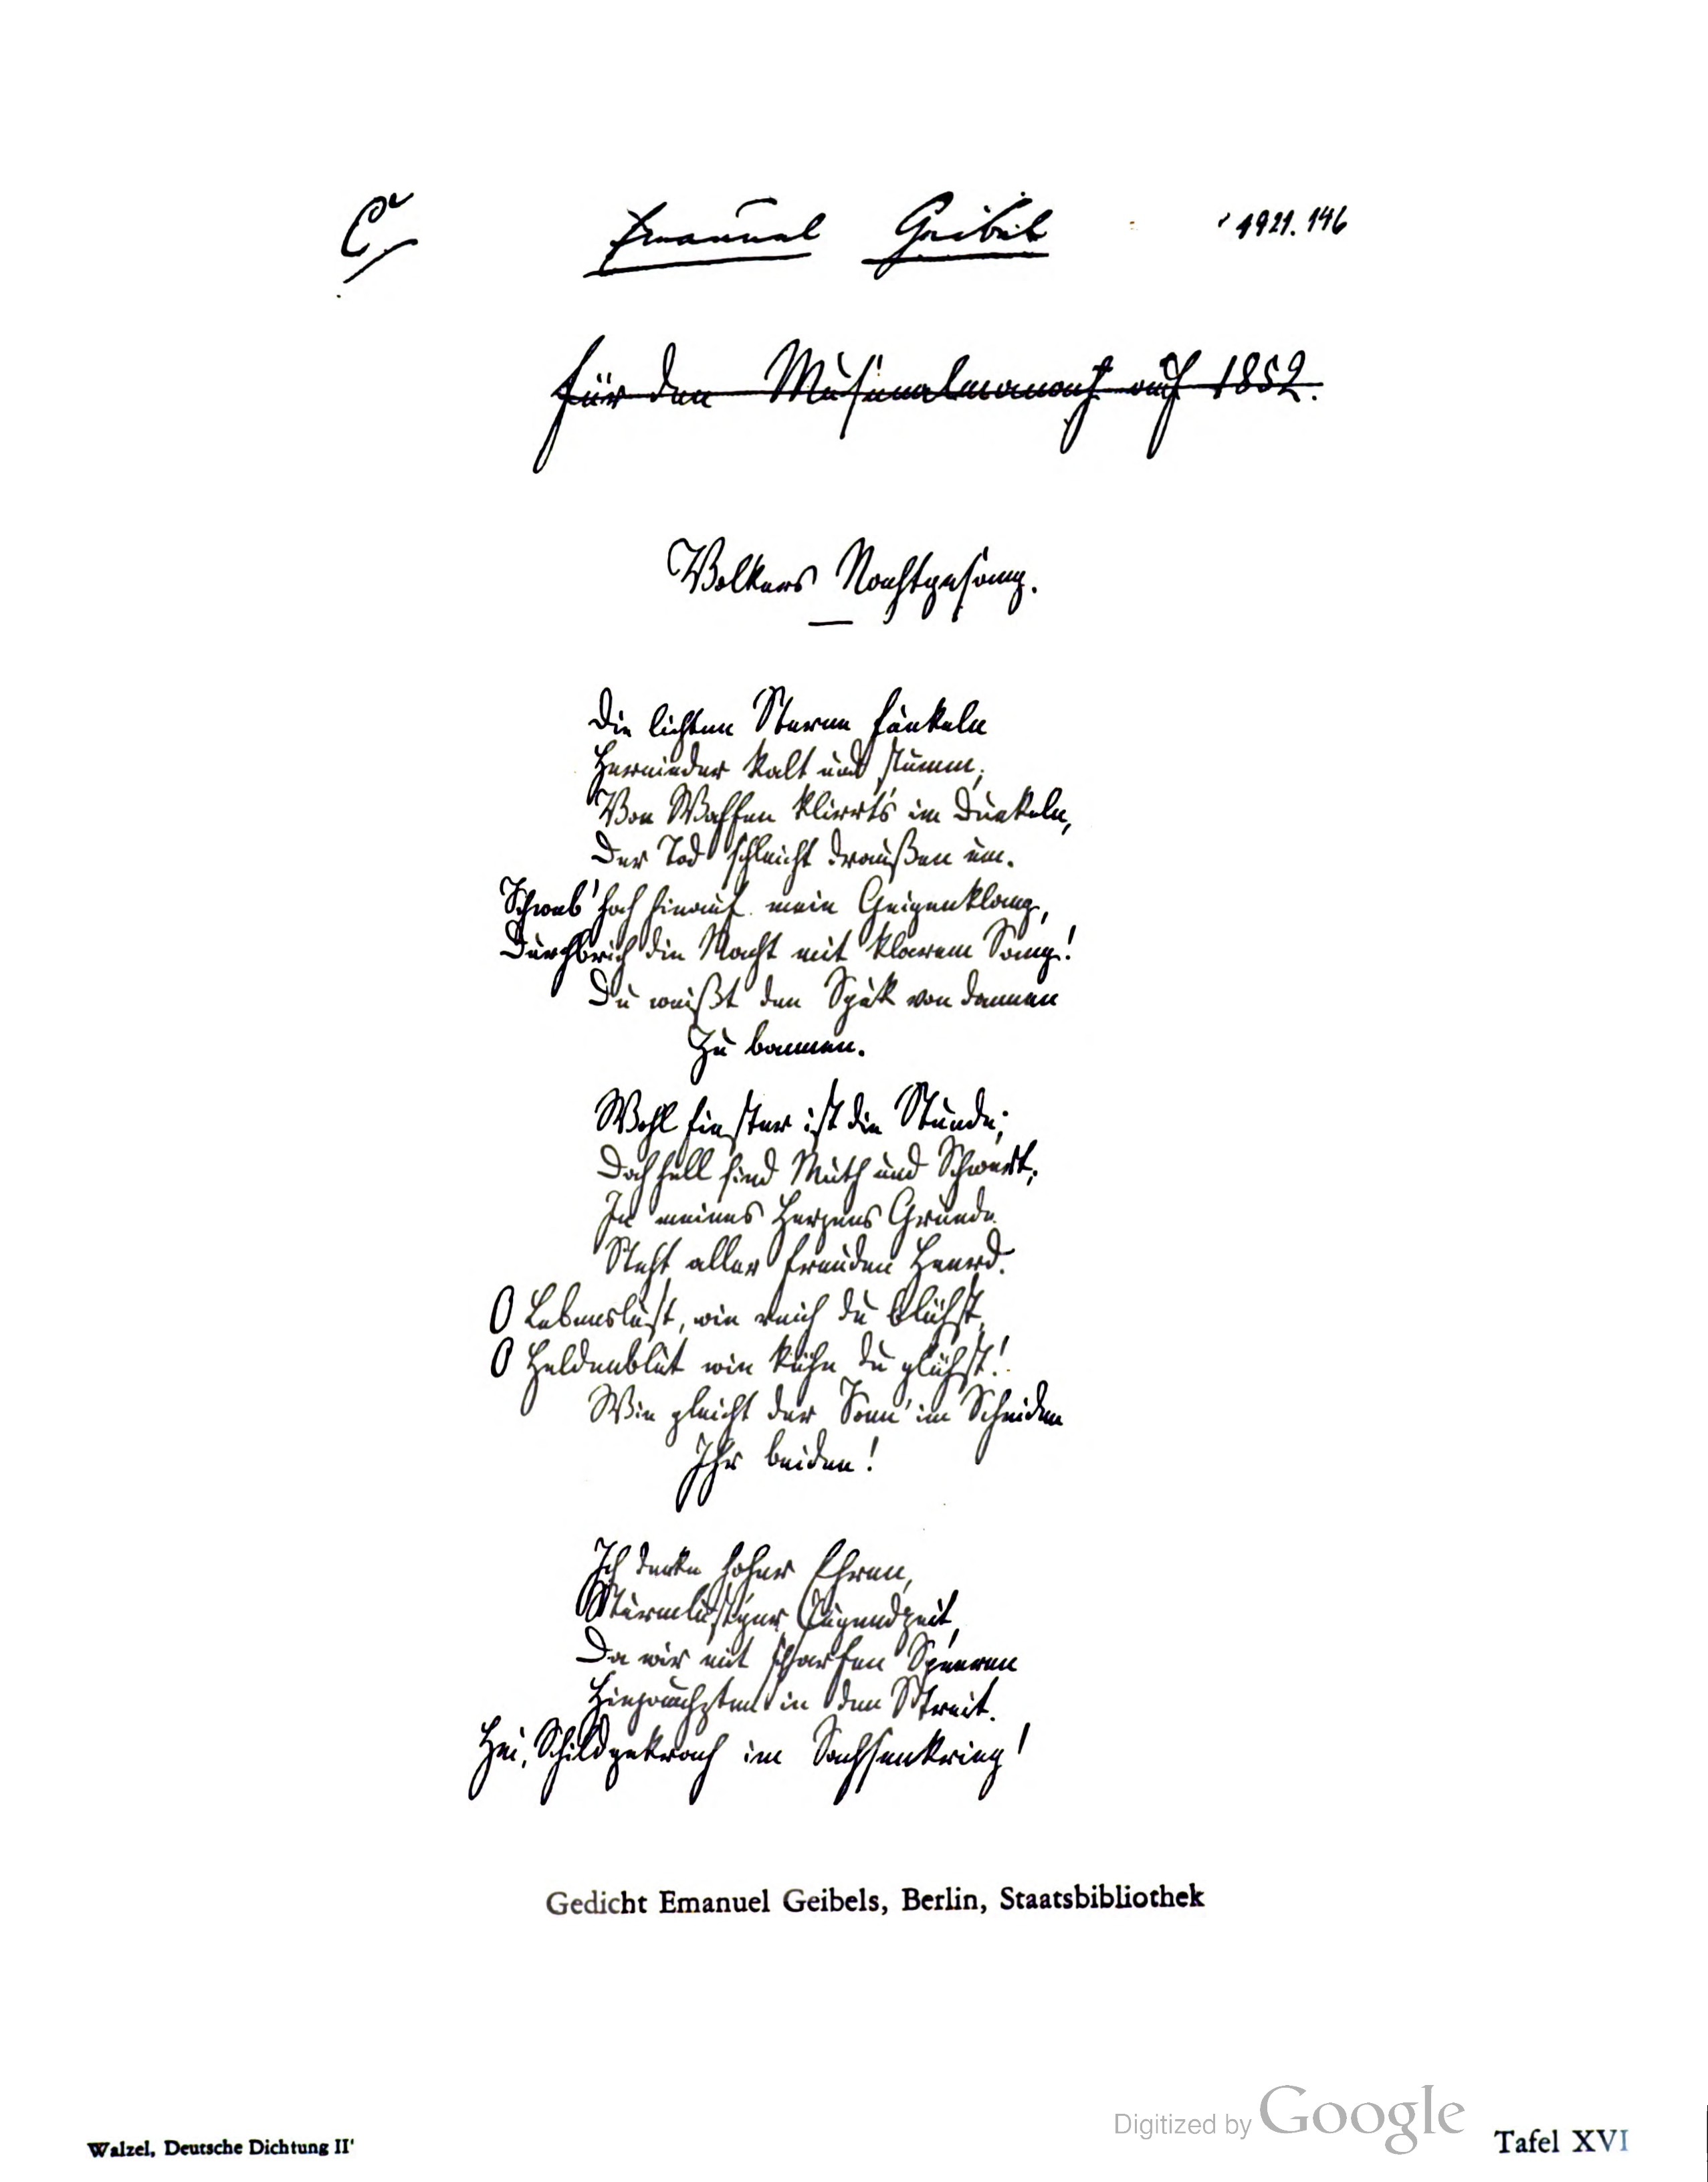 C
Emanuel Geibel
1921. 146
Für den Musenalmanach auf 1852.
Volkers Nachtgesang.
Die lichten Sterne funkeln
Hernieder kalt und stumm;
Von Waffen klirrt's im Dunkeln,
Der Tod schleicht draußen um.
Schweb' hoch hinauf mein Geigenklang,
Durchbrich die Nacht mit klarem Sang!
Du weißt den Spuk von dannen
Zu bannen.
Wohl finster ist die Stunde;
Doch hell sind Muth und Schwert;
In meines Herzens Grunde
Steht aller Freuden Heerd.
O Lebenslust, wie reich du blühst,
O Heldenblut wie kühn du glühst!
Wie gleicht der Sonn' im Scheiden
Ihr beiden!
Ich denke hoher Ehren,
Sturmlust'ger Jugendzeit,
Da wir mit scharfen Speeren
Hinjauchzten in den Streit.
Hei, Schildgekrach im Sachsenkrieg!
Gedicht Emanuel Geibels, Berlin, Staatsbibliothek
Digitized by Google
Walzel, Deutsche Dichtung II'
Tafel XVI